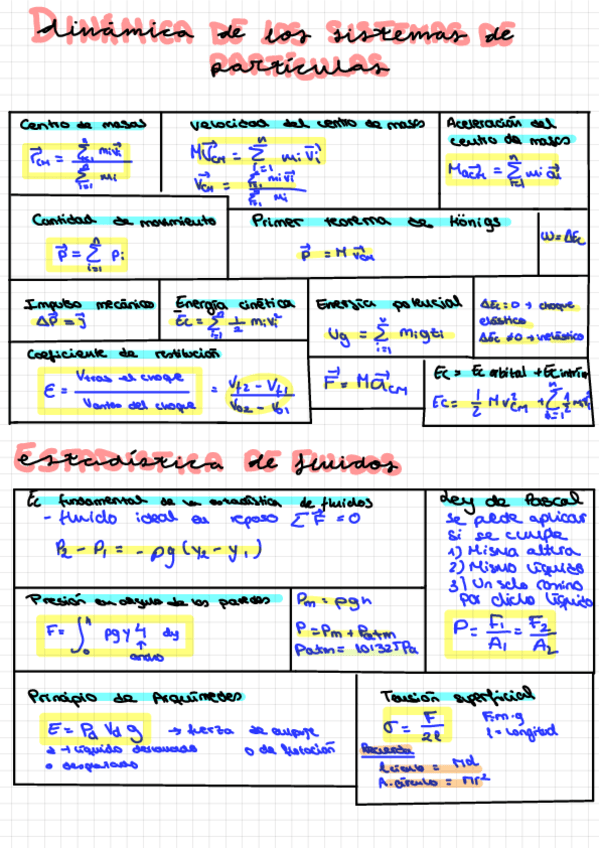 Dinámica de los sistemas de
partículas
Centro de masas
r⃗cm = Σ mi v⃗i / Σ mi
Velocidad del centro de masas
M V⃗cm = Σ mi v⃗i
V⃗cm = Σ mi v⃗i / Σ mi
Aceleración del
centro de masas
M acm = Σ mi a⃗i
Cantidad de movimiento
P⃗ = Σ pi
Primer teorema de Königs
P⃗ = M v⃗cm
ω = ΔEc
Impulso mecánico
ΔP⃗ = J⃗
Energía cinética
Ec = Σ 1/2 mi vi²
Energía potencial
Ug = Σ mi g zi
ΔEc = 0 → choque
elástico
ΔEc ≠ 0 → inelástico
Coeficiente de restitución
ε = Vtras el choque / Vantes del choque = Vf2 - Vf1 / Vo2 - Vo1
F⃗ = M a⃗CM
Ec = Ec orbital + Ec intrín
Ec = 1/2 M v²CM + Σ 1/2 m v²
Estadística de fluidos
Ec fundamental de la estadística de fluidos
- fluido ideal en reposo ΣF⃗ = 0
P2 - P1 = - ρg (y2 - y1)
Ley de Pascal
se puede aplicar
si se cumple
1) Misma altura
2) Mismo líquido
3) Un solo camino
por dicho líquido
P = F1/A1 = F2/A2
Presión en alguna de las paredes
F = ∫ ρg y L dy
ancho
Pm = ρgh
P = Pm + Patm
Patm = 101325 Pa
Principio de Arquímedes
E = ρd Vd g → fuerza de empuje
d → líquido derramado o de flotación
o desplazado
Tensión superficial
σ = F/2l
F: m·g
l = longitud
Recuerda
l círculo = πd
A. círculo = πr²